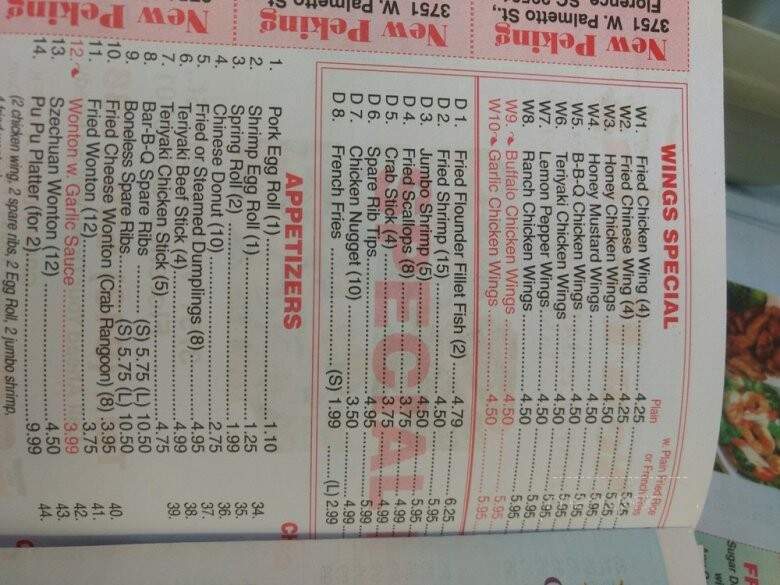 New Peking
3751 W. Palmetto St.,
New Peking
3751 W. Palmetto St.
New Peking
WINGS SPECIAL
Plain
w. Plain Fried Rice
or French Fries
W1. Fried Chicken Wing (4) 4.25 5.25
W2. Fried Chinese Wing (4) 4.25 5.25
W3. Honey Chicken Wings 4.50 5.25
W4. Honey Mustard Wings 4.50 5.95
W5. B-B-Q Chicken Wings 4.50 5.95
W6. Teriyaki Chicken Wings 4.50 5.95
W7. Lemon Pepper Wings 4.50 5.95
W8. Ranch Chicken Wings 4.50 5.95
W9. Buffalo Chicken Wings 4.50 5.95
W10. Garlic Chicken Wings 4.50 5.95
SPECIAL
D 1. Fried Flounder Fillet Fish (2) 4.79 6.25
D 2. Fried Shrimp (15) 4.50 5.95
D 3. Jumbo Shrimp (5) 4.50 5.95
D 4. Fried Scallops (8) 3.75 4.99
D 5. Crab Stick (4) 3.75 4.99
D 6. Spare Rib Tips 4.95 5.99
D 7. Chicken Nugget (10) 3.50 4.99
D 8. French Fries (S) 1.99 (L) 2.99
APPETIZERS
1. Pork Egg Roll (1) 1.10
2. Shrimp Egg Roll (1) 1.25
3. Spring Roll (2) 1.99
4. Chinese Donut (10) 2.75
5. Fried or Steamed Dumplings (8) 4.95
6. Teriyaki Beef Stick (4) 4.99
7. Teriyaki Chicken Stick (5) 4.75
8. Bar-B-Q Spare Ribs (S) 5.75 (L) 10.50
9. Boneless Spare Ribs (S) 5.75 (L) 10.50
10. Fried Cheese Wonton (Crab Rangoon) (8) 3.95
11. Fried Wonton (12) 3.75
12. Wonton w. Garlic Sauce 3.99
13. Szechuan Wonton (12) 4.50
14. Pu Pu Platter (for 2) 9.99
(2 chicken wing, 2 spare ribs, 2 Egg Roll, 2 jumbo shrimp,
34.
35.
36.
37.
38.
39.
40.
41.
42.
43.
44.